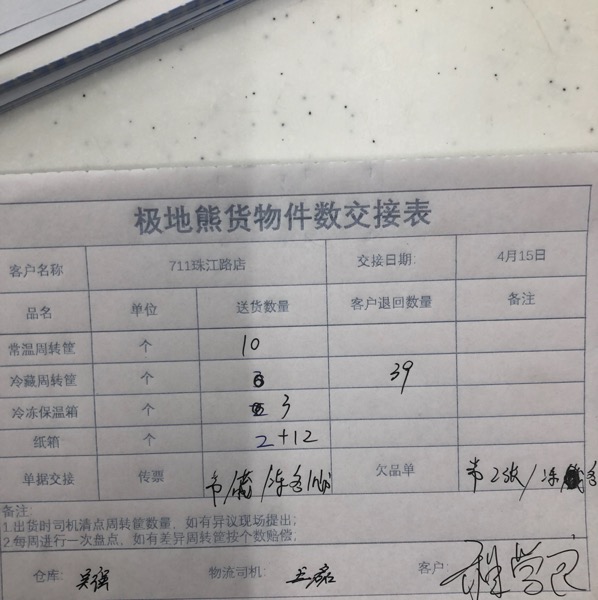 极地熊货物件数交接表
客户名称 711珠江路店 交接日期: 4月15日
品名 单位 送货数量 客户退回数量 备注
常温周转筐 个 10
冷藏周转筐 个 6 39
冷冻保温箱 个 3
纸箱 个 2+12
单据交接 传票 欠品单
备注:
1.出货时司机清点周转筐数量，如有异议现场提出;
2.每周进行一次盘点，如有差异周转筐按个数赔偿;
仓库: 吴强 物流司机: 客户: